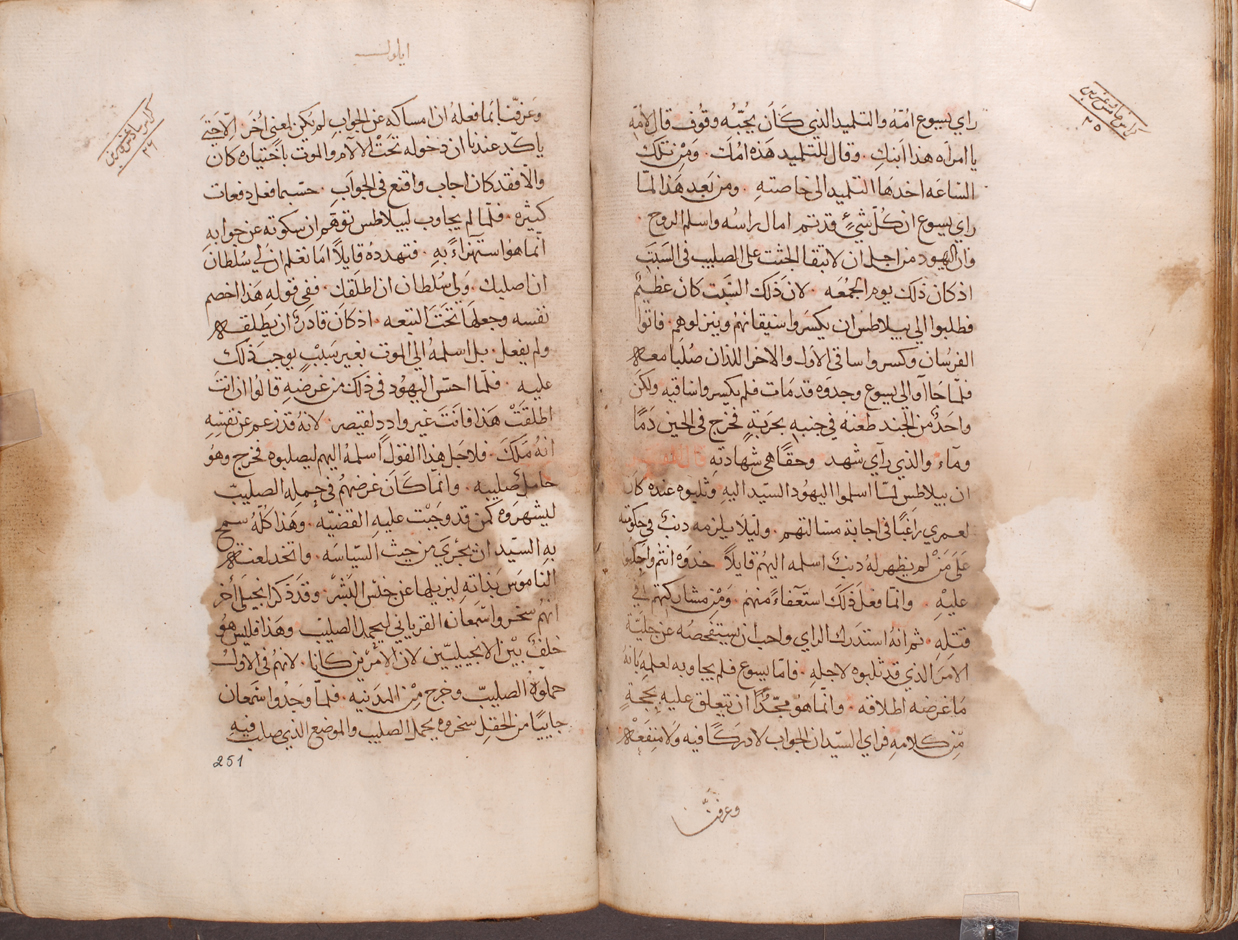 راي يسوع امّه والتلميد الذي كان يحبّه وقوف قال لامّه
يا امراه هذا ابنكِ ٠ وقال للتلميد هذه امّك ٠ ومن تلك
السّاعه اخدها التلميد الى خاصته ٠ ومن بعد هذا لمّا
راي يسوع ان كلّ شيءٍ قد تم امال راسه واسلم الروح ٠
وان اليهود من اجل ان لا تبقا الجثث على الصليب في السّبت
اذ كان ذلك يوم الجمعه ٠ لان ذلك السّبت كان عظيمٌ
فطلبوا الي بيلاطس ان يكسروا سيقانهم وينزلوهم ٠ فاتوا
الفرسان وكسروا ساقى الاول والاخر اللذان صُلبا معه
فلمّا جاآو الى يسوع وجدوه قد مات فلم يكسروا ساقيه ولكن
واحدٌ من الجند طعنه في جنبه بحربةٍ فخرج في الحين دمًا
وماء ٠ والذي رآي شهد وحقّا هي شهادته
ان بيلاطس لمّا اسلموا اليهود السّيد اليه وثلبوه عنده كان
لعمري راغبًا في اجابة مسالتهم ٠ وليلا يلزمه دنبٌ في حكومته
على مَن لم يظهر له دنبٌ اسلمه اليهم قايلاً خدوه انتم واحكموا
عليه ٠ وانّما فعل ذلك استعفاءً منهم ٠ ومن مشاركتهم في
قتله ٠ ثم انه استدرك الراي واحب ان يستفحصه عن جليّة
الامر الذي قد ثلبوه لاجله ٠ فامّا يسوع فلم يجاوبه لعلمه بانه
ما غرضه اطلاقه ٠ وانّما هو مجدًّا ان يتعلق عليه بحجةٍ
من كلامه فراي السّيد ان الجواب لا دركًا فيه ولا منفعة
وعرفنا
اياول
وعرفنا بما فعله ان امساكه عن الجواب لم يكن لمعنى اخر ٠ الا حتى
ياكّد عندنا ان دخوله تحت الالام والموت باختياره كان
والا فقد كان اجاب واقنع في الجواب ٠ حسبما فعل دفعات
كثيره ٠ فلمّا لم يجاوب لبيلاطس توهّم ان سكوته عن جوابه
انّما هو استهزاءً به ٠ فتهدده قايلاً اما تعلم ان لي سُلطان
ان اصلبك ٠ ولى سُلطان ان اطلقك ٠ ففي قوله هذا اخصم
نفسه وجعلها تحت التبعه ٠ اذ كان قادرٌ ان يطلقه
ولم يفعل ٠ بل اسلمه الي الموت بغير سببٍ يوجب ذلك
عليه ٠ فلمّا احسّ اليهود في ذلك من غرضه قالوا ان انت
اطلقت هذا فانت غير وادد لقيصر ٠ لانه قد زعم عن نفسه
انه ملك ٠ فلاجل هذا القول اسلمه اليهم ليصلبوه فخرج وهو
حامل صليبه ٠ وانّما كان غرضهم في حمله الصليب
ليشهروه كمن قد وجبت عليه القضيّه ٠ وهذا كلّه سمح
به السّيد ان يجري من حيث السّياسه ٠ واتخد لعنة
الناموس بذاته ليزيلها عن جنس البشر ٠ وقد ذكر انجيلى اخر
انهم سخروا شمعان القرياني لحمل الصليب ٠ وهذا فليس هو
خلفٌ بين الانجيليّين لان الامرين كانا ٠ لانهم في الاول
حملوه الصليب وخرج من المدينه ٠ فلمّا وجدوا شمعان
جاييًا من الحقل سخروه بحمل الصليب والموضع الذي صلب فيه
251